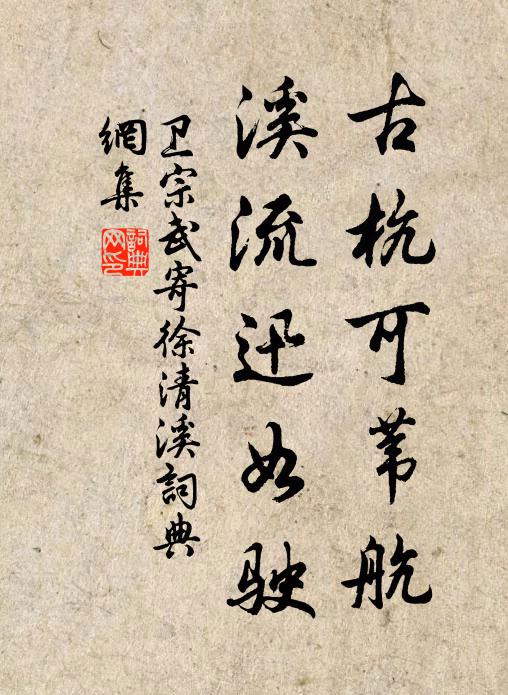 古杭可苇航
溪流迅如驶
卫宗武寄徐清溪詞典
網集
詞典
网印